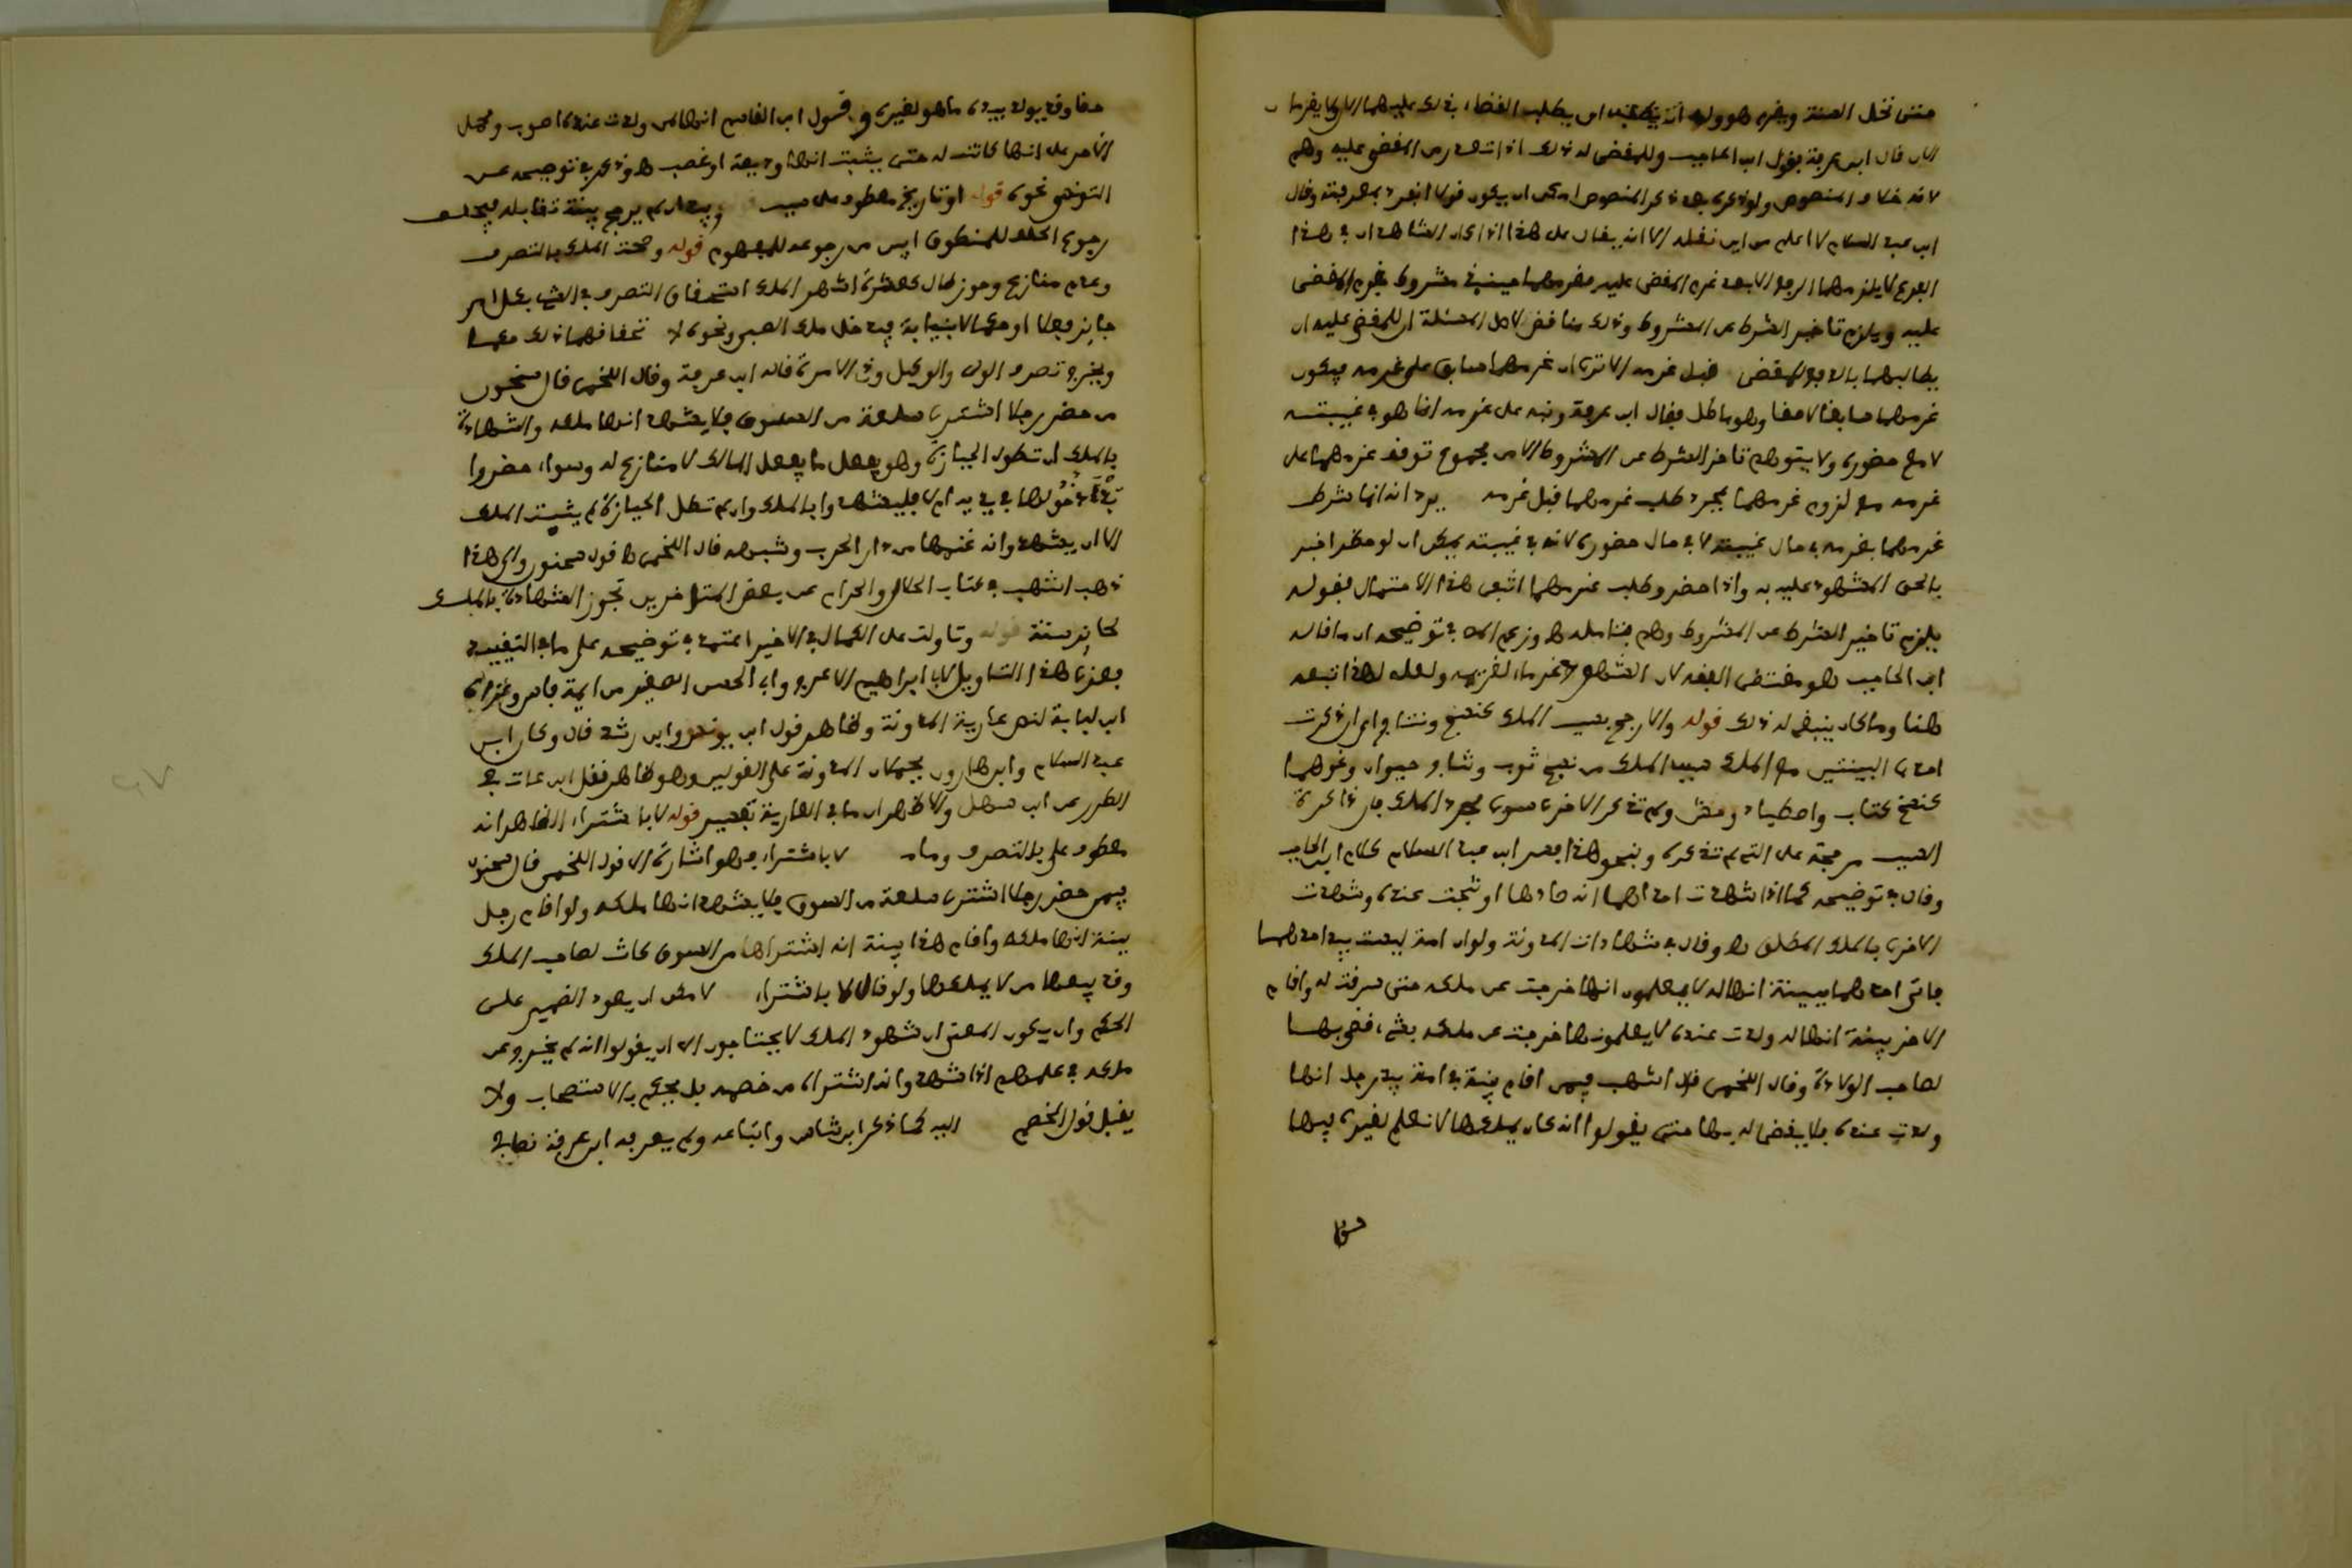 حتى تحل السنة ويغرم هو وله أن يطلب القضاء بذلك عليهما
قال ابن عرفة بقول ابن الحاجب وللمقضى له ذلك اذا تعذر من المقضى عليه وهم
لانه خلاف المنصوص ولو ذكره بعد ذكر المنصوص امكن ان يكون قولا انفرد بمعرفته وقال
ابن عبد السلام لا اعلم من اين نقله الا انه يقال على هذا اذا كان الشاهدان في هذا
الفرع لا يلزمهما الا بعد غرم المقضى عليه فغرمهما حينئذ مشروط بغرم المقضى
عليه ويلزم تاخير الشرط عن المشروط وذلك مناقض لاصل المسئلة ان للمقضى عليه ان
يطالبهما بالدفع للمقضى قبل غرمه الا ترى ان غرمهما سابق على غرمه فيكون
غرمهما سابقا لاحقا وهو باطل فقال ابن عرفة وتبه على غرمه انما هو في غيبته
لا مع حضوره ولا يتوهم تاخر الشرط عن المشروط الا من مجموع توقف غرمهما على
غرمه مع لزوم غرمهما بمجرد طلب غرمهما قبل غرمه يرد انه انما شرط
غرمهما بغرمه في حال غيبته لا في حال حضوره لانه في غيبته يمكن ان لو حضر اخبر
بالحق المشهود عليه به واذا حضر وطلب غرمهما انتفى هذا الاحتمال فقوله
يلزم تاخير الشرط عن المشروط وهم فتامله اه وزعم في توضيحه ان ما قاله
ابن الحاجب هو مقتضى الفقه لان الشهود غرماء لغريمه ولعله لهذا تبعه
هنا وما كان ينبغي له ذلك قوله والا رجح بسبب الملك كنسج ونتاج اي ان ذكرت
احدى البينتين مع الملك سبب الملك من نسج ثوب ونتاج حيوان ونحوهما
كنسخ كتاب واصطياد وحش ولم تذكر الاخرى سوى مجرد الملك فان ذاكرة
السبب مرجحة على التي لم تذكره وبنحو هذا فسر ابن عبد السلام كلام ابن الحاجب
وقال في توضيحه كما اذا شهدت احداهما انه صادها او نتجت عنده وشهدت
الاخرى بالملك المطلق اه وقال في شهادات المدونة ولو ان امة ليست بيد احدهما
فاتى احدهما ببينة انها له لا يعلمون انها خرجت عن ملكه حتى سرقت له واقام
الاخر بينة انها له ولدت عنده لا يعلمونها خرجت عن ملكه بشيء قضى بها
لصاحب الولادة وقال اللخمي قال اشهب فيمن اقام بينة في امة بيد رجل انها
ولدت عنده فلا يقضى له بها حتى يقولوا انه كان يملكها لا نعلم لغيره فيها
حقا وقد يولد بيده ما هو لغيره وقول ابن القاسم انها لمن ولدت عنده اصوب ومحمل
الامر على انها كانت له حتى يثبت انها وديعة او غصب اه وذكر في توضيحه عن
التونسي نحوه قوله او تاريخ معطوف على سبب وبيد ان لم يرجح بينة تقابله فيحلف
رجوع الحلف للمنطوق ابين من رجوعه للمفهوم قوله وصحة الملك بالتصرف
وعدم منازع وحوز طال كعشرة اشهر الملك استحقاق التصرف في الشيء بكل امر
جايز فعلا او حكما لا بنيابة فيدخل ملك الصبي ونحوه لا ستحقاقهما ذلك حكما
ويخرج تصرف الوصي والوكيل وذي الامرة قاله ابن عرفة وقال اللخمي قال سحنون
من حضر رجلا اشترى سلعة من السوق فلا يشهد انها ملكه والشهادة
بالملك ان تطول الحيازة وهو يفعل ما يفعل المالك لا منازع له وسواء حضروا
دخولها في يديه ام لا فليشهدوا بالملك وان لم تطل الحيازة لم يثبت الملك
الا ان يشهدوا انه غنمها من دار الحرب وشبهه قال اللخمي اه قول سحنون والى هذا
ذهب اشهب في كتاب الحلال والحرام عن بعض المتاخرين تجوز الشهادة بالملك
لحايز سنة قوله وتاولت على الكمال في الاخير اعتمد في توضيحه على ما في التقييد
بعزى هذا التاويل لابا ابراهيم الاعرج وابى الحسن الصغير من ايمة فاس
ابن لبابة لنص عارية المدونة وظاهر قول ابن يونس وابن رشد قال وكان ابن
عبد السلام وابن هارون يحملان المدونة على القولين وهو ظاهر نقل ابن عات في
الطرر عن ابن سهل والاظهر ان ما في العارية تفسير قوله لا باشتراء الظاهر انه
معطوف على بالتصرف وما لا باشتراء وهو اشارة الى قول اللخمي قال سحنون
فيمن حضر رجلا اشترى سلعة من السوق فلا يشهد انها ملكه ولو اقام رجل
بينة انها ملكه واقام هذا بينة انه اشتراها من السوق كانت لصاحب الملك
وقد يبيعها من لا يملكها ولو قال لا باشتراء لا مكن ان يعود الضمير على
الحكم وان يكون المعنى ان شهود الملك لا يحتاجون الى ان يقولوا انه لم يخرج عن
ملكه في علمهم اذا شهدوا انه اشتراه من خصمه بل يحكم بالاستصحاب ولا
يقبل قول الخصم اليه كما ذكر ابن شاس واتباعه ولم يعرفه ابن عرفة نصا في